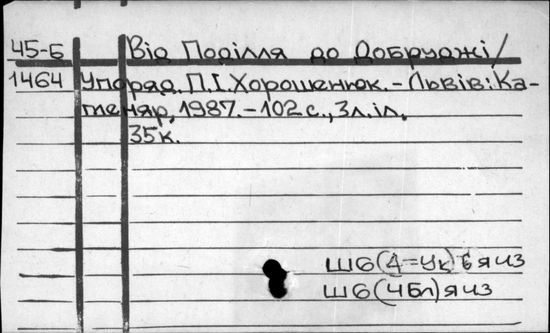 45-Б Від Поділля до Добруджі/
1464 Упоряд. П.І. Хорошенюк. - Львів: Ка-
меняр, 1987. - 102 с., 3 л. іл.
35 к.
Ш6(4=Ук) я из
Ш6(4Бл) я из